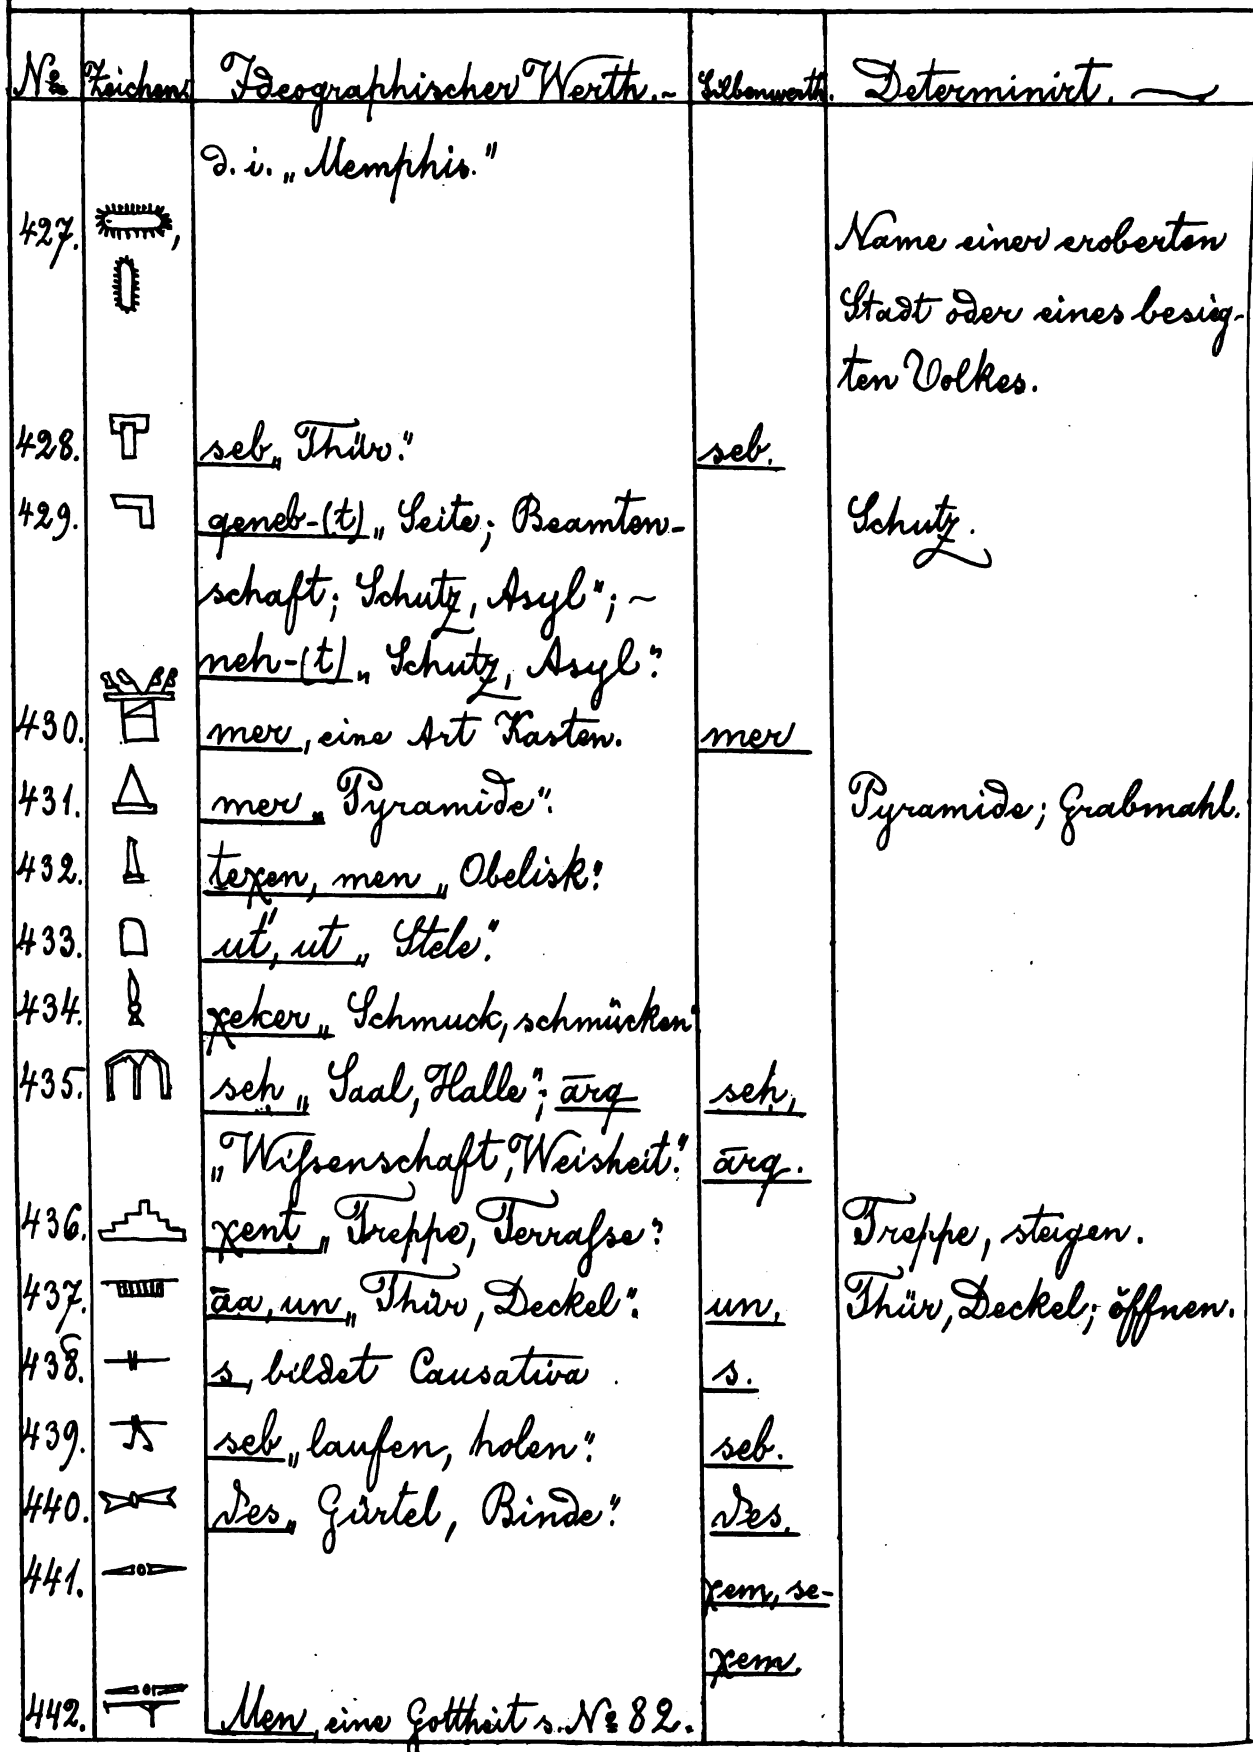 № Zeichen. Ideographischer Werth. Silbenwerth. Determinirt.
d. i. „Memphis."
427. , Name einer eroberten
Stadt oder eines besieg-
ten Volkes.
428. seb „Thür." seb.
429. qeneb-(t) „Seite; Beamten- Schutz.
schaft; Schutz, Asyl"; ~
neh-(t) „Schutz, Asyl."
430. mer, eine Art Kasten. mer
431. mer „Pyramide". Pyramide; Grabmahl.
432. teχen, men „Obelisk."
433. ut', ut „Stele."
434. χeker „Schmuck, schmücken"
435. seḥ „Saal, Halle"; ārq seḥ,
„Wissenschaft, Weisheit." ārq.
436. χent „Treppe, Terrasse." Treppe, steigen.
437. āa, un „Thür, Deckel". un, Thür, Deckel; öffnen.
438. s, bildet Causativa s.
439. seb „laufen, holen". seb.
440. „Gürtel, Binde."
441. χem, se-
χem,
442. Men, eine Gottheit s. № 82.